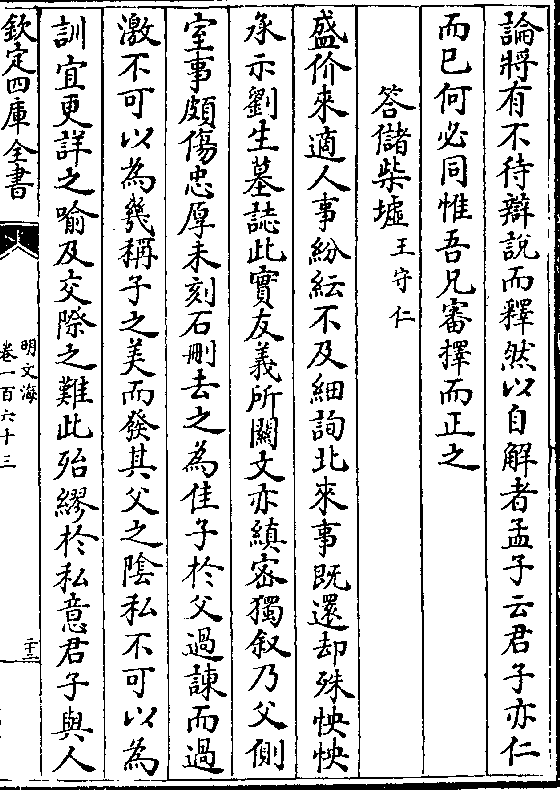 論將有不待辯說而釋然以自解者孟子云君子亦仁
而已何必同惟吾兄審擇而正之
答儲柴墟王守仁
盛价來適人事紛紜不及細詢北來事既還却殊怏怏
承示劉生墓誌此實友義所關文亦縝宻獨叙乃父側
室事頗傷忠厚未刻石刪去之為佳子於父過諫而過
激不可以為幾稱子之美而發其父之陰私不可以為
訓宜更詳之喻及交際之難此殆繆於私意君子與人
欽定四庫全書
明文海
卷一百六十三
二十三